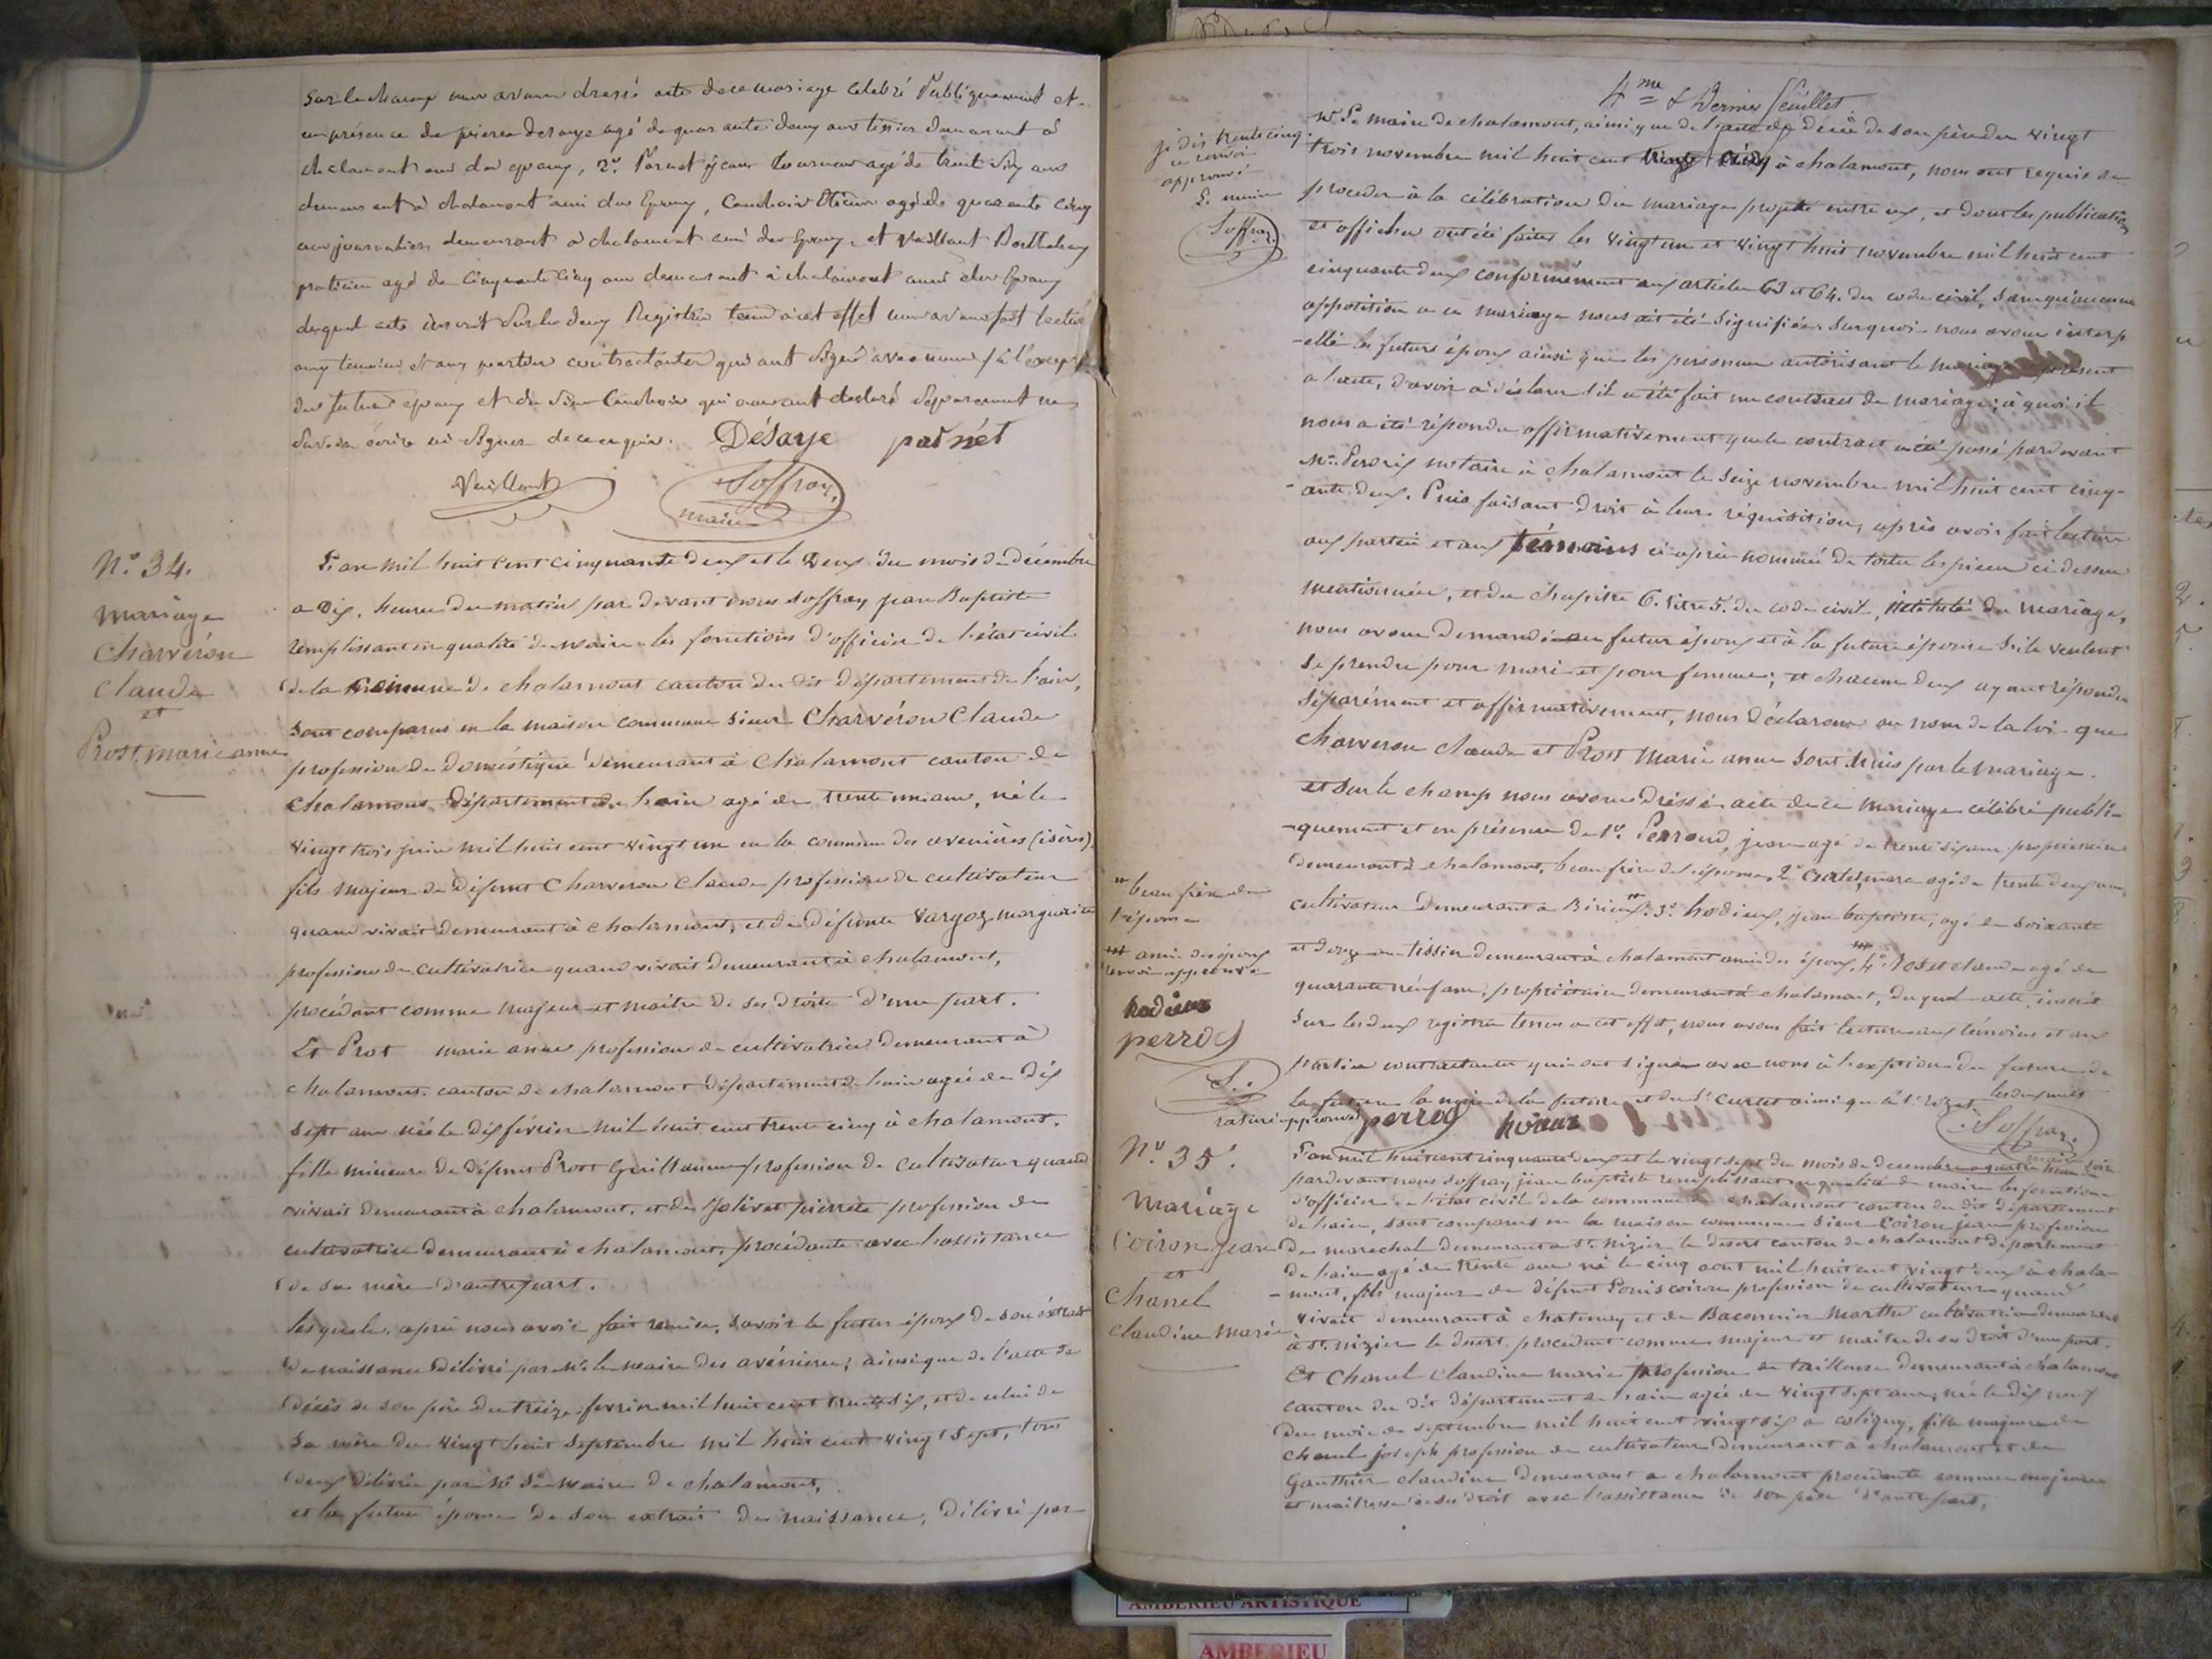 sur le champ nous avons dressé acte de ce mariage célébré Publiquement et
en présence de pierre desaye agé de quarante deux ans tissier demeurant à
chalamont ami des epoux, 2° Pornet jean tourneur agé de trent six ans
demeurant à chalamont ami des Epoux, Canchoir Etienne agé de quarante cinq
ans journalier demeurant à chalamont ami des Epoux, et Vaillant Barthelemy
praticien agé de Cinquante Cinq ans demeurant à chalamont aussi des Epoux
duquel acte inscrit Sur les deux Registres tenus à cet effet nous avons fait lecture
aux temoins et aux parties contractantes qui ont Signé avec nous, à l'except
des futurs epoux et du Sieur Canchoir qui nous ont declaré séparement ne
Savoir écrire ni Signer de ce enquis. Désaye pornét
Vaillant Soffray,
maire
N° 34.
mariage
Charvéron
Claude
et
Prost, marie anne
L'an mil huit cent cinquante deux et le Deux du mois de Décembre
a Dix, heures du matin par devant nous Soffray jean Baptiste
remplissant en qualité de maire les fonctions d'officier de l'état civil
de la commune de chalamont canton du dit département de l'ain,
sont comparus en la maison commune sieur Charvéron Claude
profession de doméstique demeurant à Chalamont canton de
chalamont, Département de l'ain agé de trente un ans, né le
vingt trois juin mil huit cent vingt un en la commune des avenières (isère)
fils majeur de défunt Charveron Claude profession de cultivateur
quand vivait demeurant à chalamont, et de défunte Vargoz marguerite
profession de cultivatrice quand vivait demeurant à chalamont,
procédant comme majeur et maître de ses droits d'une part.
Et Prot marie anne profession de cultivatrice demeurant à
chalamont canton de chalamont département de l'ain agée de dix
sept ans née le dix février mil huit cent trente cinq à chalamont.
fille mineure de défunt Prost Guillaume profession de cultivateur quand
vivait demeurant à chalamont, et de Jolivet pierrete profession de
cultivatrice demeurant à chalamont, procédante avec l'assistance
de sa mère d'autre part.
lesquels, après nous avoir fait remise, savoir le futur époux de son éxtrait
de naissance délivré par Mr le maire des avénières, ainsi que de l'acte de
décès de son père du treize février mil huit cent trente six, et de celui de
sa mère du vingt huit septembre mil huit cent vingt sept, tous
deux délivrés par Mr le maire de chalamont,
et la future épouse de son extrait de naissance, délivré par
4me & Dernier feuillet.
Mr Le maire de chalamont, ainsi que de l'acte de décès de son père du vingt
trois novembre mil huit cent à chalamont, nous ont requis de
je dis trente cinq
ce renvoi
approuvé
L. maire
Soffray
proceder à la célébration du mariage projeté entre eux, et dont les publications
et affiches ont été faites les vingt un et vingt huit novembre mil huit cent
cinquante deux conformément aux articles 63 et 64. du code civil, sans qu'aucune
opposition a ce mariage nous ait été signifiée. sur quoi nous avons interp
-ellé les futurs époux ainsi que les personnes autorisant le mariage présent
a l'acte, d'avoir à déclarer s'il a été fait un contract de mariage; à quoi il
nous a été répondu affirmativement que le contract a été passé par devant
Me Perosy notaire à chalamont le seize novembre mil huit cent cinq-
-ante deux. Puis faisant droit à leurs réquisition, après avoir fait lecture
aux parties et aux témoins ci après nommés de toutes les pièces ci dessus
mentionnées, et du chapitre 6. titre 5. du code civil, intitulé du mariage,
nous avons demandé au futur époux et à la future épouse s'ils veulent
se prendre pour mari et pour femme; et chacun deux ayant répondu
séparément et affirmativement, nous déclarons au nom de la loi que
charveron claude et Prost Marie anne sont unis par le mariage.
et sur le champ nous avons dressé acte de ce mariage célébré publi-
-quement et en présence de 1° Perroud, jean agé de trente six ans propriétaire
demeurant à chalamont, beau frère de l'épouse, 2° Curtet, marc agé de trente deux ans
cultivateur demeurant a Birieux. 3° hodieux, jean baptiste, agé de soixante
et douze ans tissier demeurant à chalamont ami des époux, 4° Rozet claude agé de
quarante neuf ans, propriétaire demeurant à chalamont, duquel acte, inscrit
sur les deux registres tenus a cet effet, nous avons fait lecture aux témoins et aux
parties contractantes qui ont signés avec nous à l'exeption du futur de
la future la mère de la future et du Sr Curtet ainsi que le Sr rozet
beau frère de
l'épouse
ami des époux
renvoi approuvé
hodieux
perrod
S.
rature approuvée perrod hodieux Soffray.
maire
N° 35.
Mariage
Coiron Jean
et
Chanel
Claudine Marie
L'an mil huit cent cinquante deux et le vingt sept du mois de decembre a quatre heures soir
pardevant nous Soffray jean baptiste remplissant en qualité de maire les fonctions
d'officier de l'état civil de la commune de chalamont canton du dit département
de l'ain, sont comparus en la maison commune sieur Coiron jean profession
de marechal demeurant a St. Nizier le desert canton de chalamont département
de l'ain agé de trente ans né le cinq aout mil huit cent vingt deux à chala-
-mont, fils majeur de défunt Louis coiron profession de cultivateur quand
vivait demeurant à chatenay et de Baconnier Marthe cultivatrice demeurant
à St. nizier le desert, procedant comme majeur et maitre de ses droits d'une part.
Et Chanel claudine marie profession de tailleuse demeurant à chalamont
canton du dit département de l'ain agée de vingt sept ans, née le dix neuf
du mois de septembre mil huit cent vingt six a coligny, fille majeure de
chanel joseph profession de cultivateur demeurant a chalamont et de
Gauthier claudine demeurant a chalamont procédante comme majeure
et maitresse de ses droit avec l'assistance de son père d'autre part,
AMBERIEU ARTISTIQUE
AMBERIEU